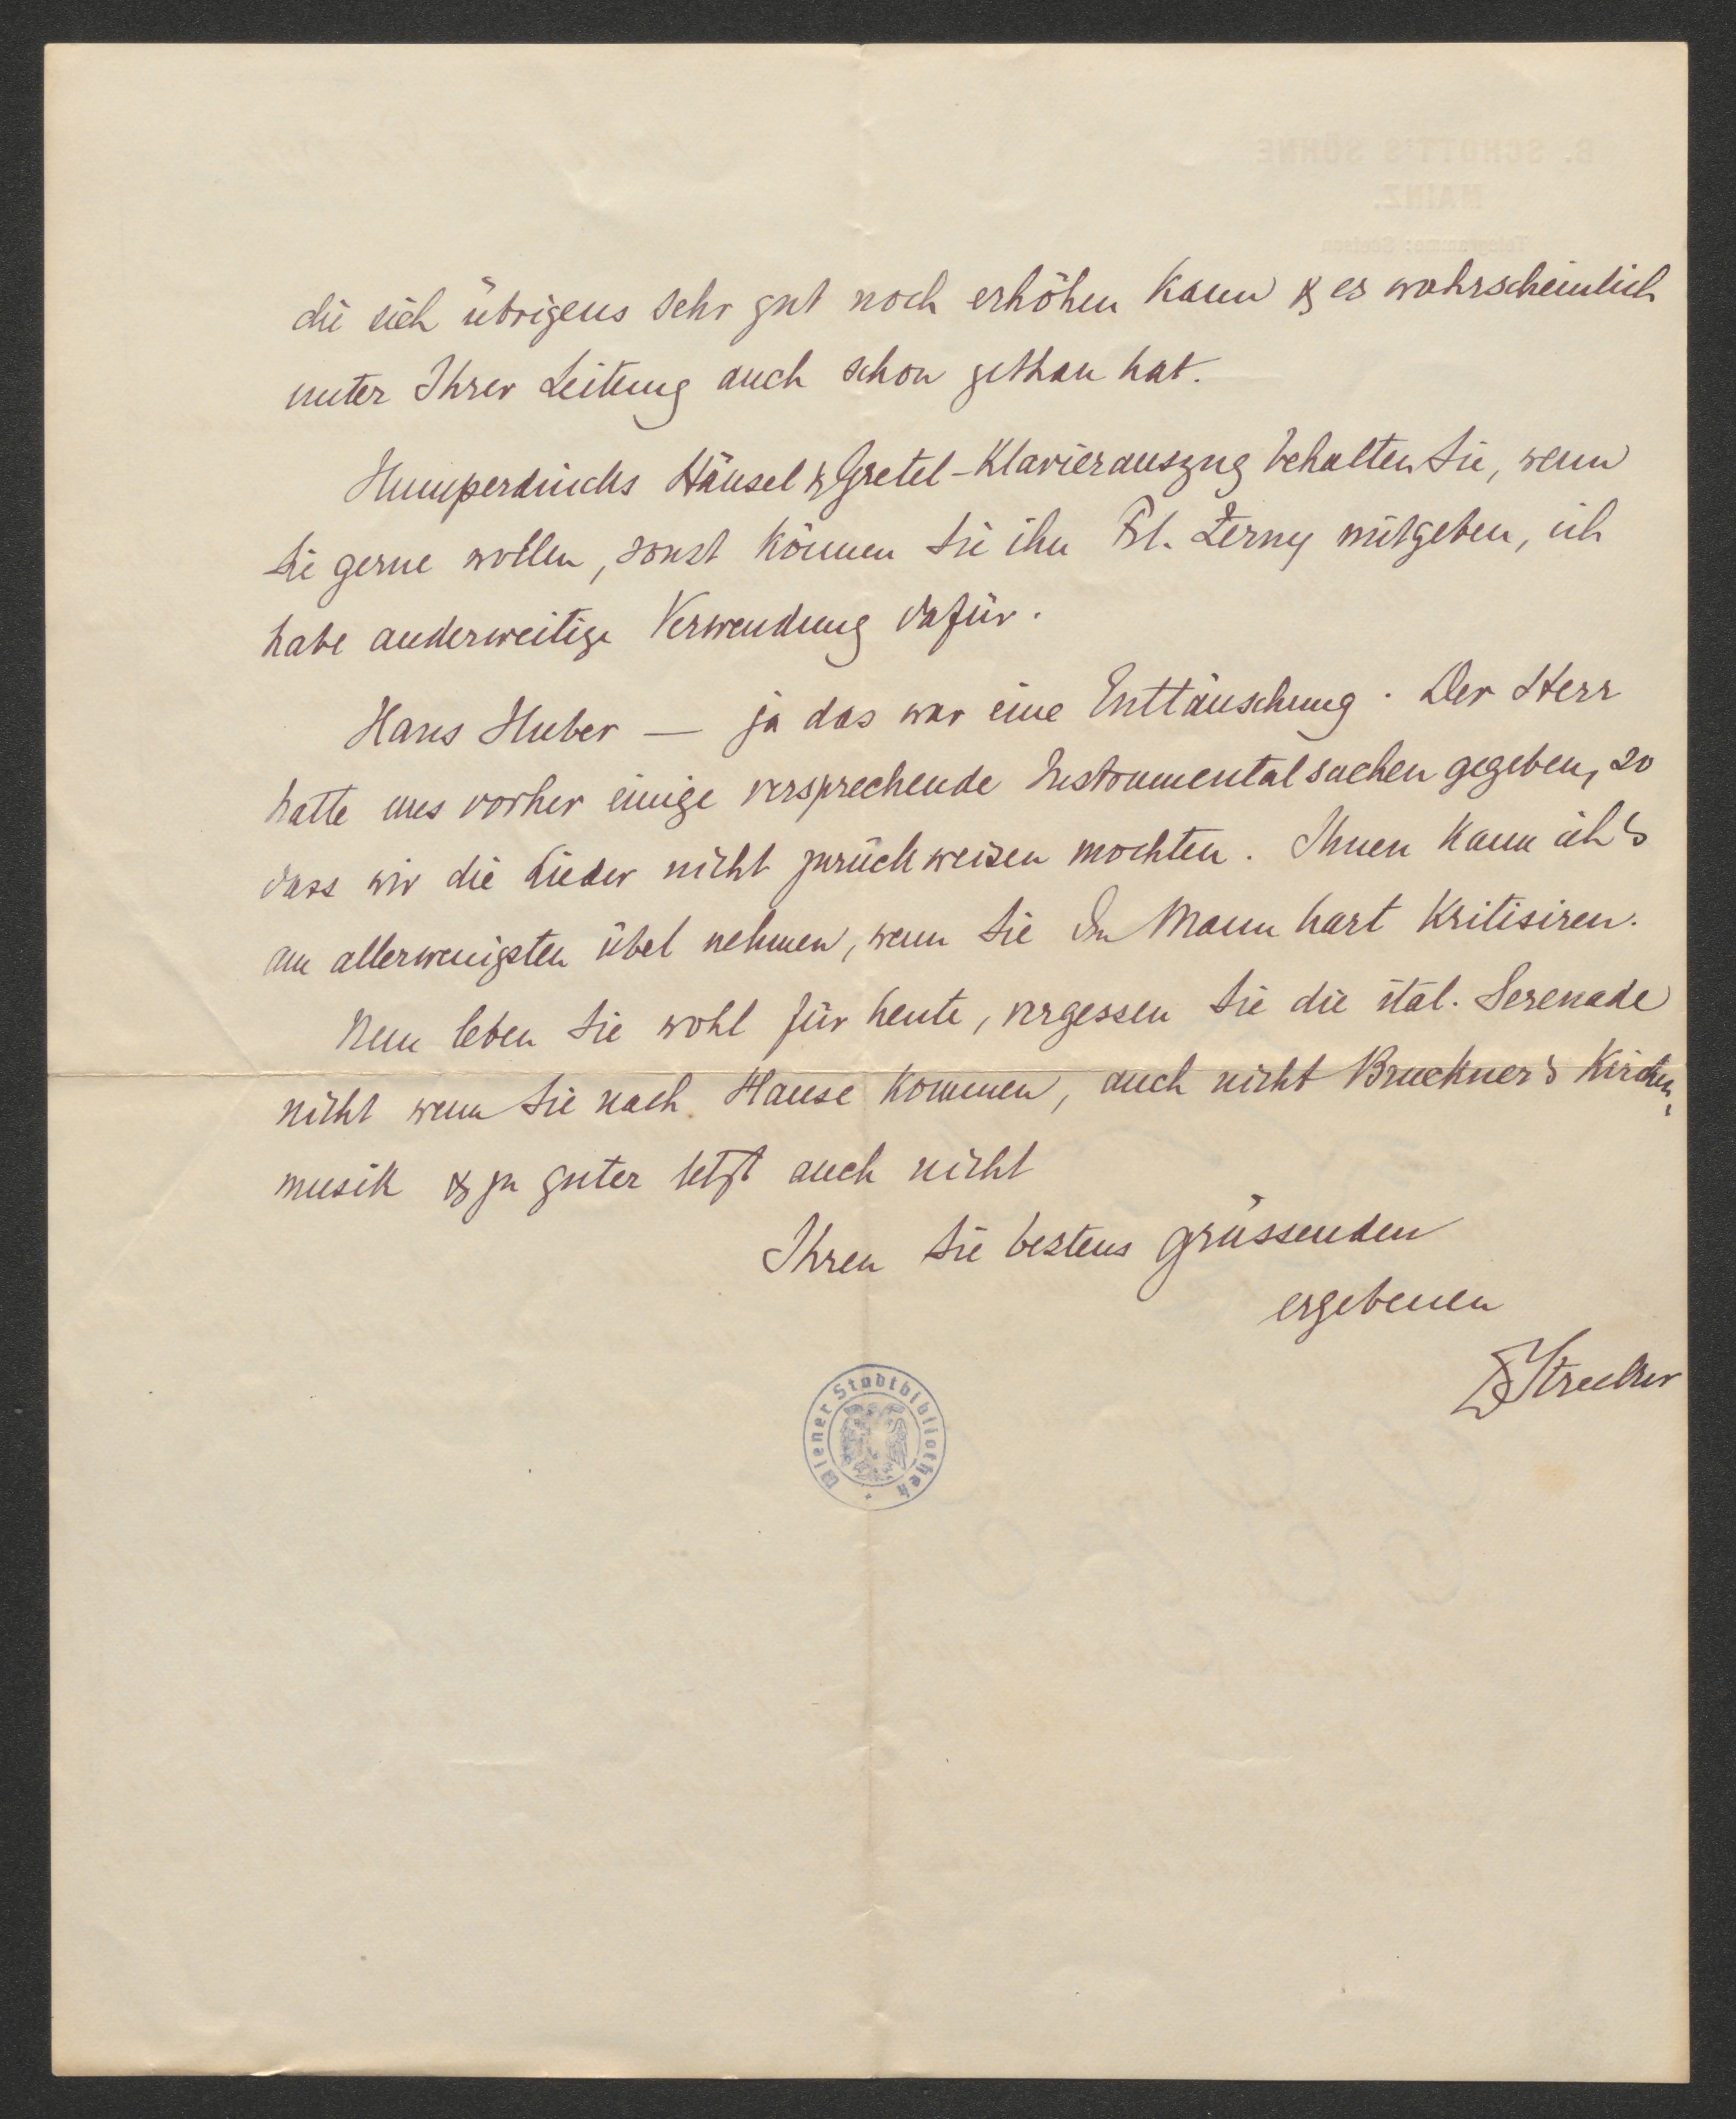 B. SCHOTT'S SÖHNE
MAINZ.
die sich übrigens sehr gut noch erhöhen kann & es wahrscheinlich
unter Ihrer Leitung auch schon gethan hat.
Humperdincks Hänsel & Gretel-Klavierauszug behalten Sie, wenn
Sie gerne wollen, sonst können Sie ihn Frl. Zerny mitgeben, ich
habe anderweitige Verwendung dafür.
Hans Huber — ja das war eine Enttäuschung. Der Herr
hatte uns vorher einige versprechende Instrumentalsachen gegeben, so
dass wir die Lieder nicht zurückweisen mochten. Ihnen kann ich's
am allerwenigsten übel nehmen, wenn Sie den Mann hart kritisiren.
Nun leben Sie wohl für heute, vergessen Sie die ital. Serenade
nicht wenn Sie nach Hause kommen, auch nicht Bruckner's Kirchen,
musik & zu guter letzt auch nicht
Ihren Sie bestens grüssenden
ergebenen
Strecker
Wiener Stadtbibliothek